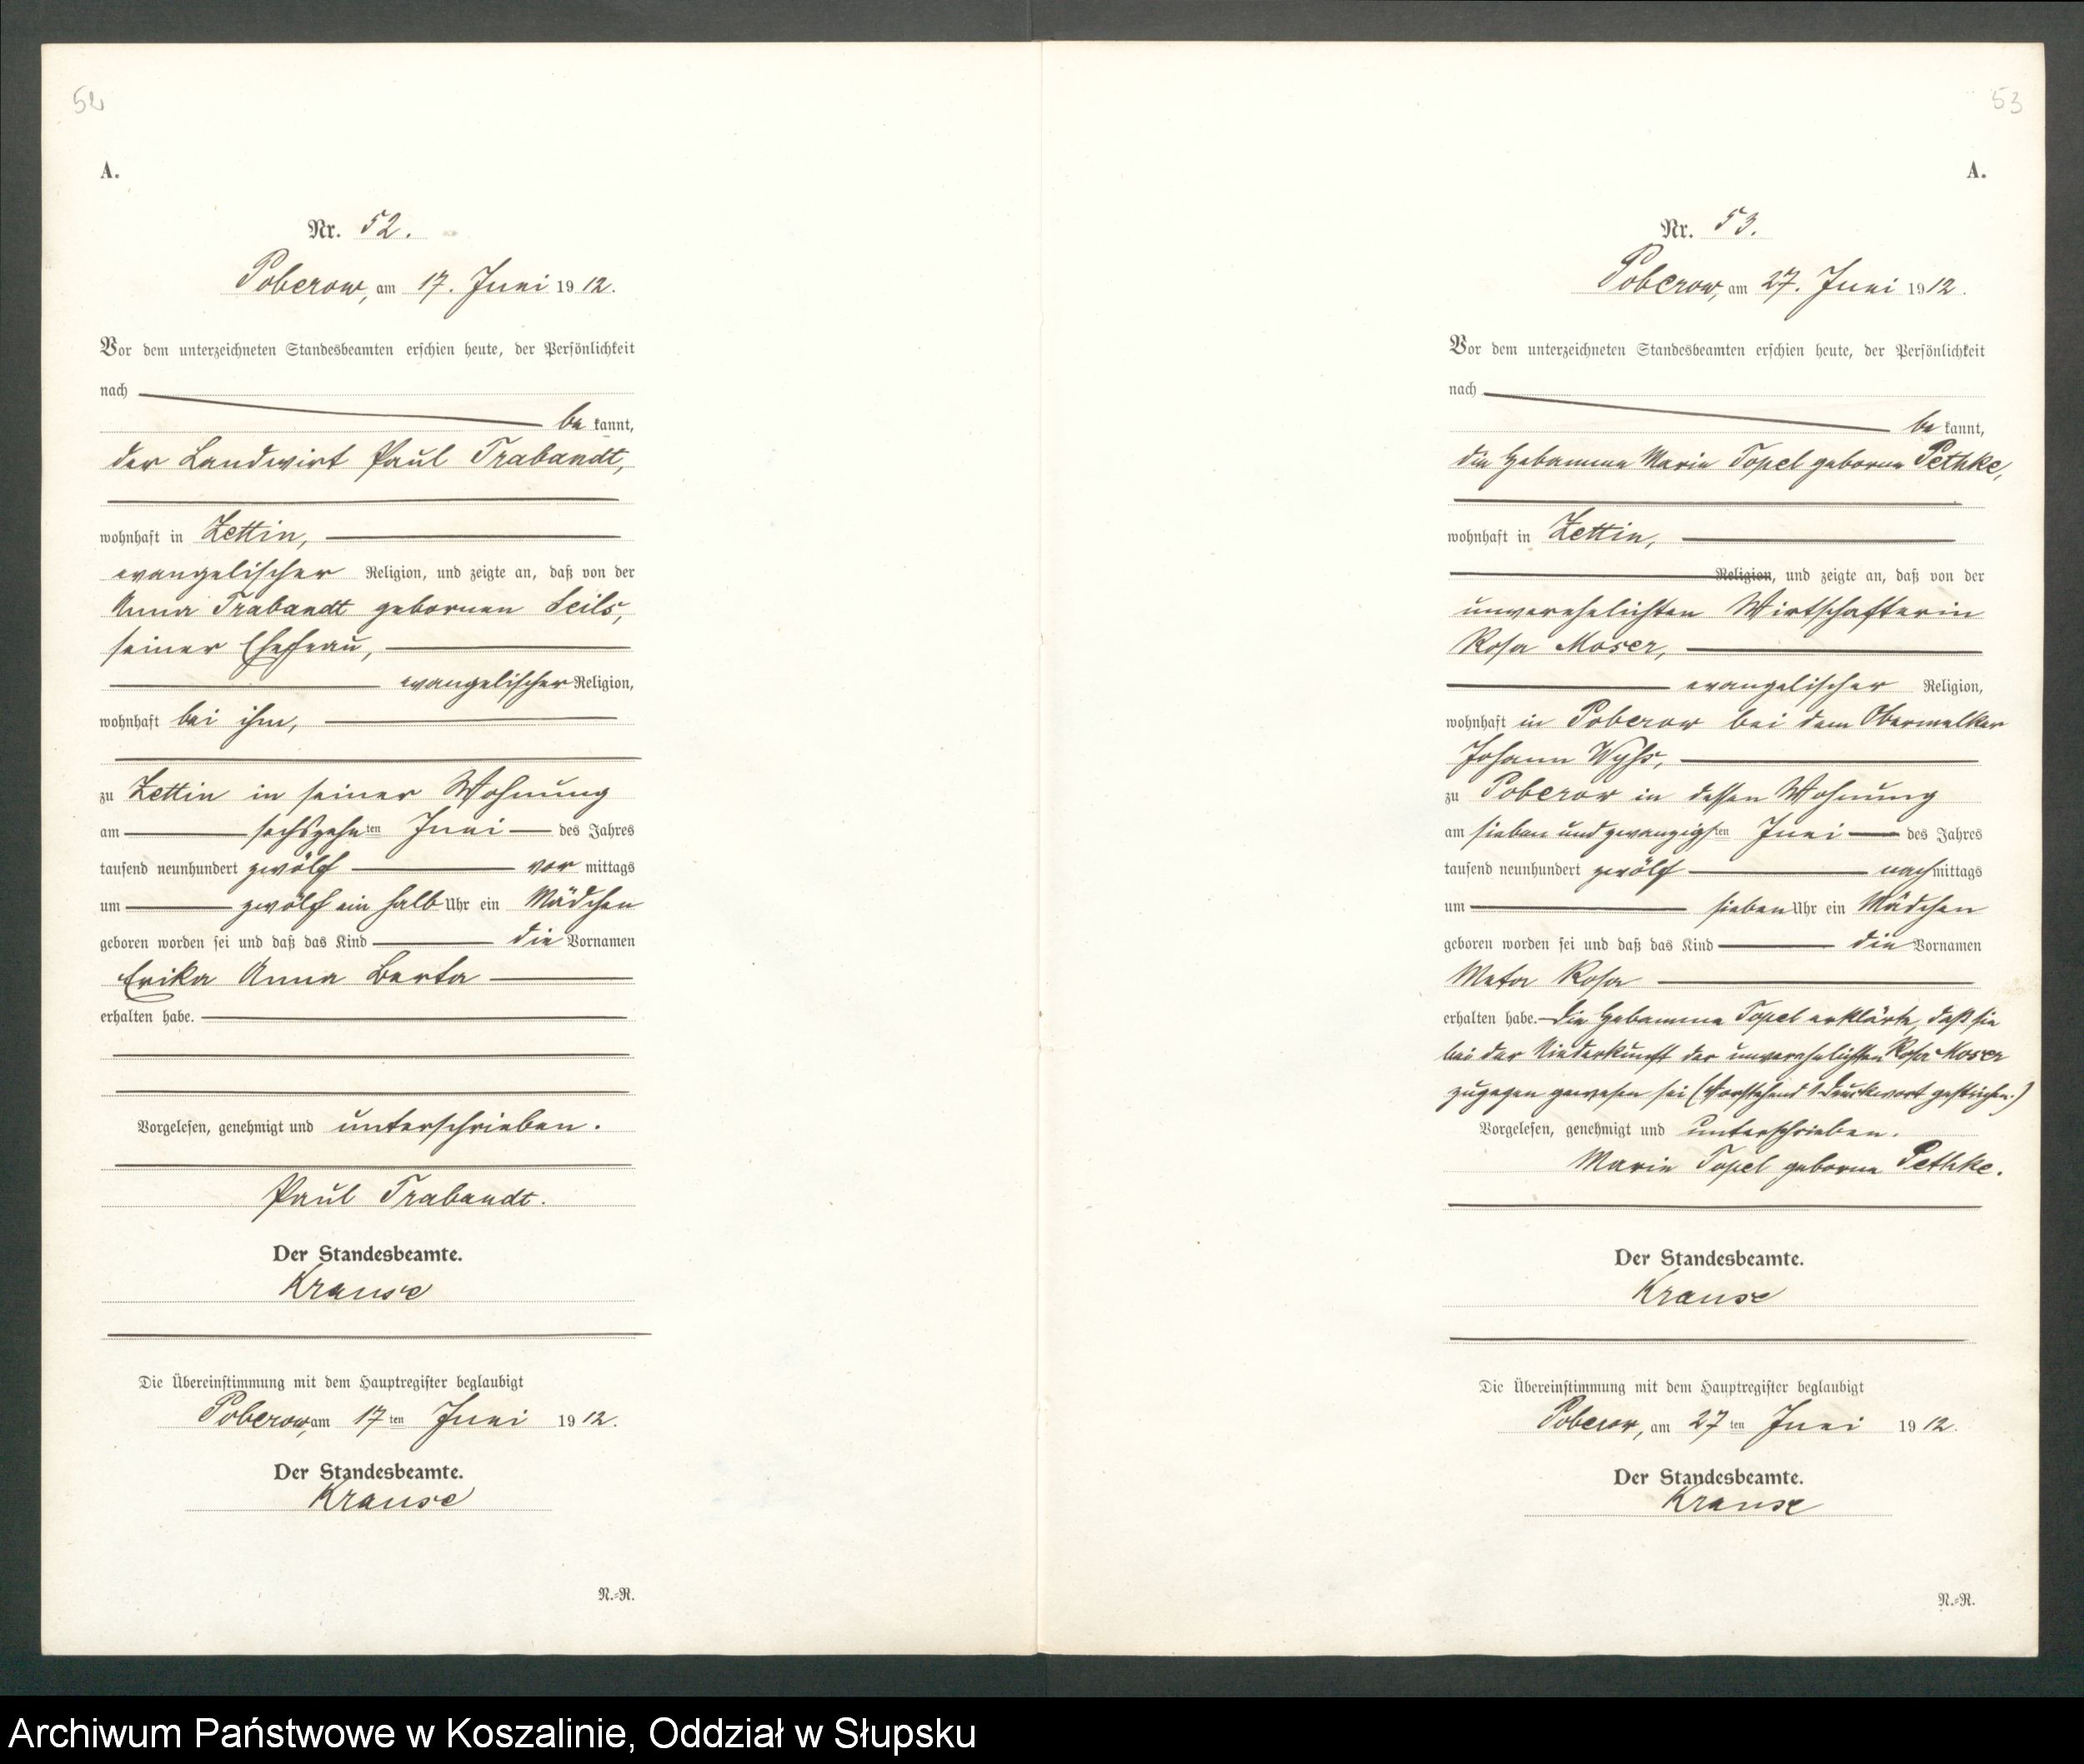 52
A.
Nr. 52.
Poberow, am 17. Juni 1912.
Vor dem unterzeichneten Standesbeamten erschien heute, der Persönlichkeit
nach
be kannt,
der Landwirt Paul Trabandt,
wohnhaft in Zettin,
evangelischer Religion, und zeigte an, daß von der
Anna Trabandt gebornen Seils,
seiner Ehefrau,
evangelischer Religion,
wohnhaft bei ihm,
zu Zettin in seiner Wohnung
am sechszehnten Juni des Jahres
tausend neunhundert zwölf vor mittags
um zwölf ein halb Uhr ein Mädchen
geboren worden sei und daß das Kind die Vornamen
Erika Anna Berta
erhalten habe.
Vorgelesen, genehmigt und unterschrieben.
Paul Trabandt.
Der Standesbeamte.
Krause
Die Übereinstimmung mit dem Hauptregister beglaubigt
Poberow, am 17ten Juni 1912.
Der Standesbeamte.
Krause
N.=R.
53
A.
Nr. 53.
Poberow, am 27. Juni 1912.
Vor dem unterzeichneten Standesbeamten erschien heute, der Persönlichkeit
nach
be kannt,
die Hebamme Marie Topel geborne Pethke,
wohnhaft in Zettin,
Religion, und zeigte an, daß von der
unverehelichten Wirtschafterin
Rosa Moser,
evangelischer Religion,
wohnhaft in Poberow bei dem Obermelker
Johann Wyss,
zu Poberow in dessen Wohnung
am sieben und zwanzigsten Juni des Jahres
tausend neunhundert zwölf nachmittags
um sieben Uhr ein Mädchen
geboren worden sei und daß das Kind die Vornamen
Meta Rosa
erhalten habe. Die Hebamme Topel erklärte, daß sie
bei der Niederkunft der unverehelichten Rosa Moser
zugegen gewesen sei (Vorstehend 1 Druckwort gestrichen.)
Vorgelesen, genehmigt und unterschrieben.
Marie Topel geborne Pethke.
Der Standesbeamte.
Krause
Die Übereinstimmung mit dem Hauptregister beglaubigt
Poberow, am 27ten Juni 1912.
Der Standesbeamte.
Krause
N.=R.
Archiwum Państwowe w Koszalinie, Oddział w Słupsku